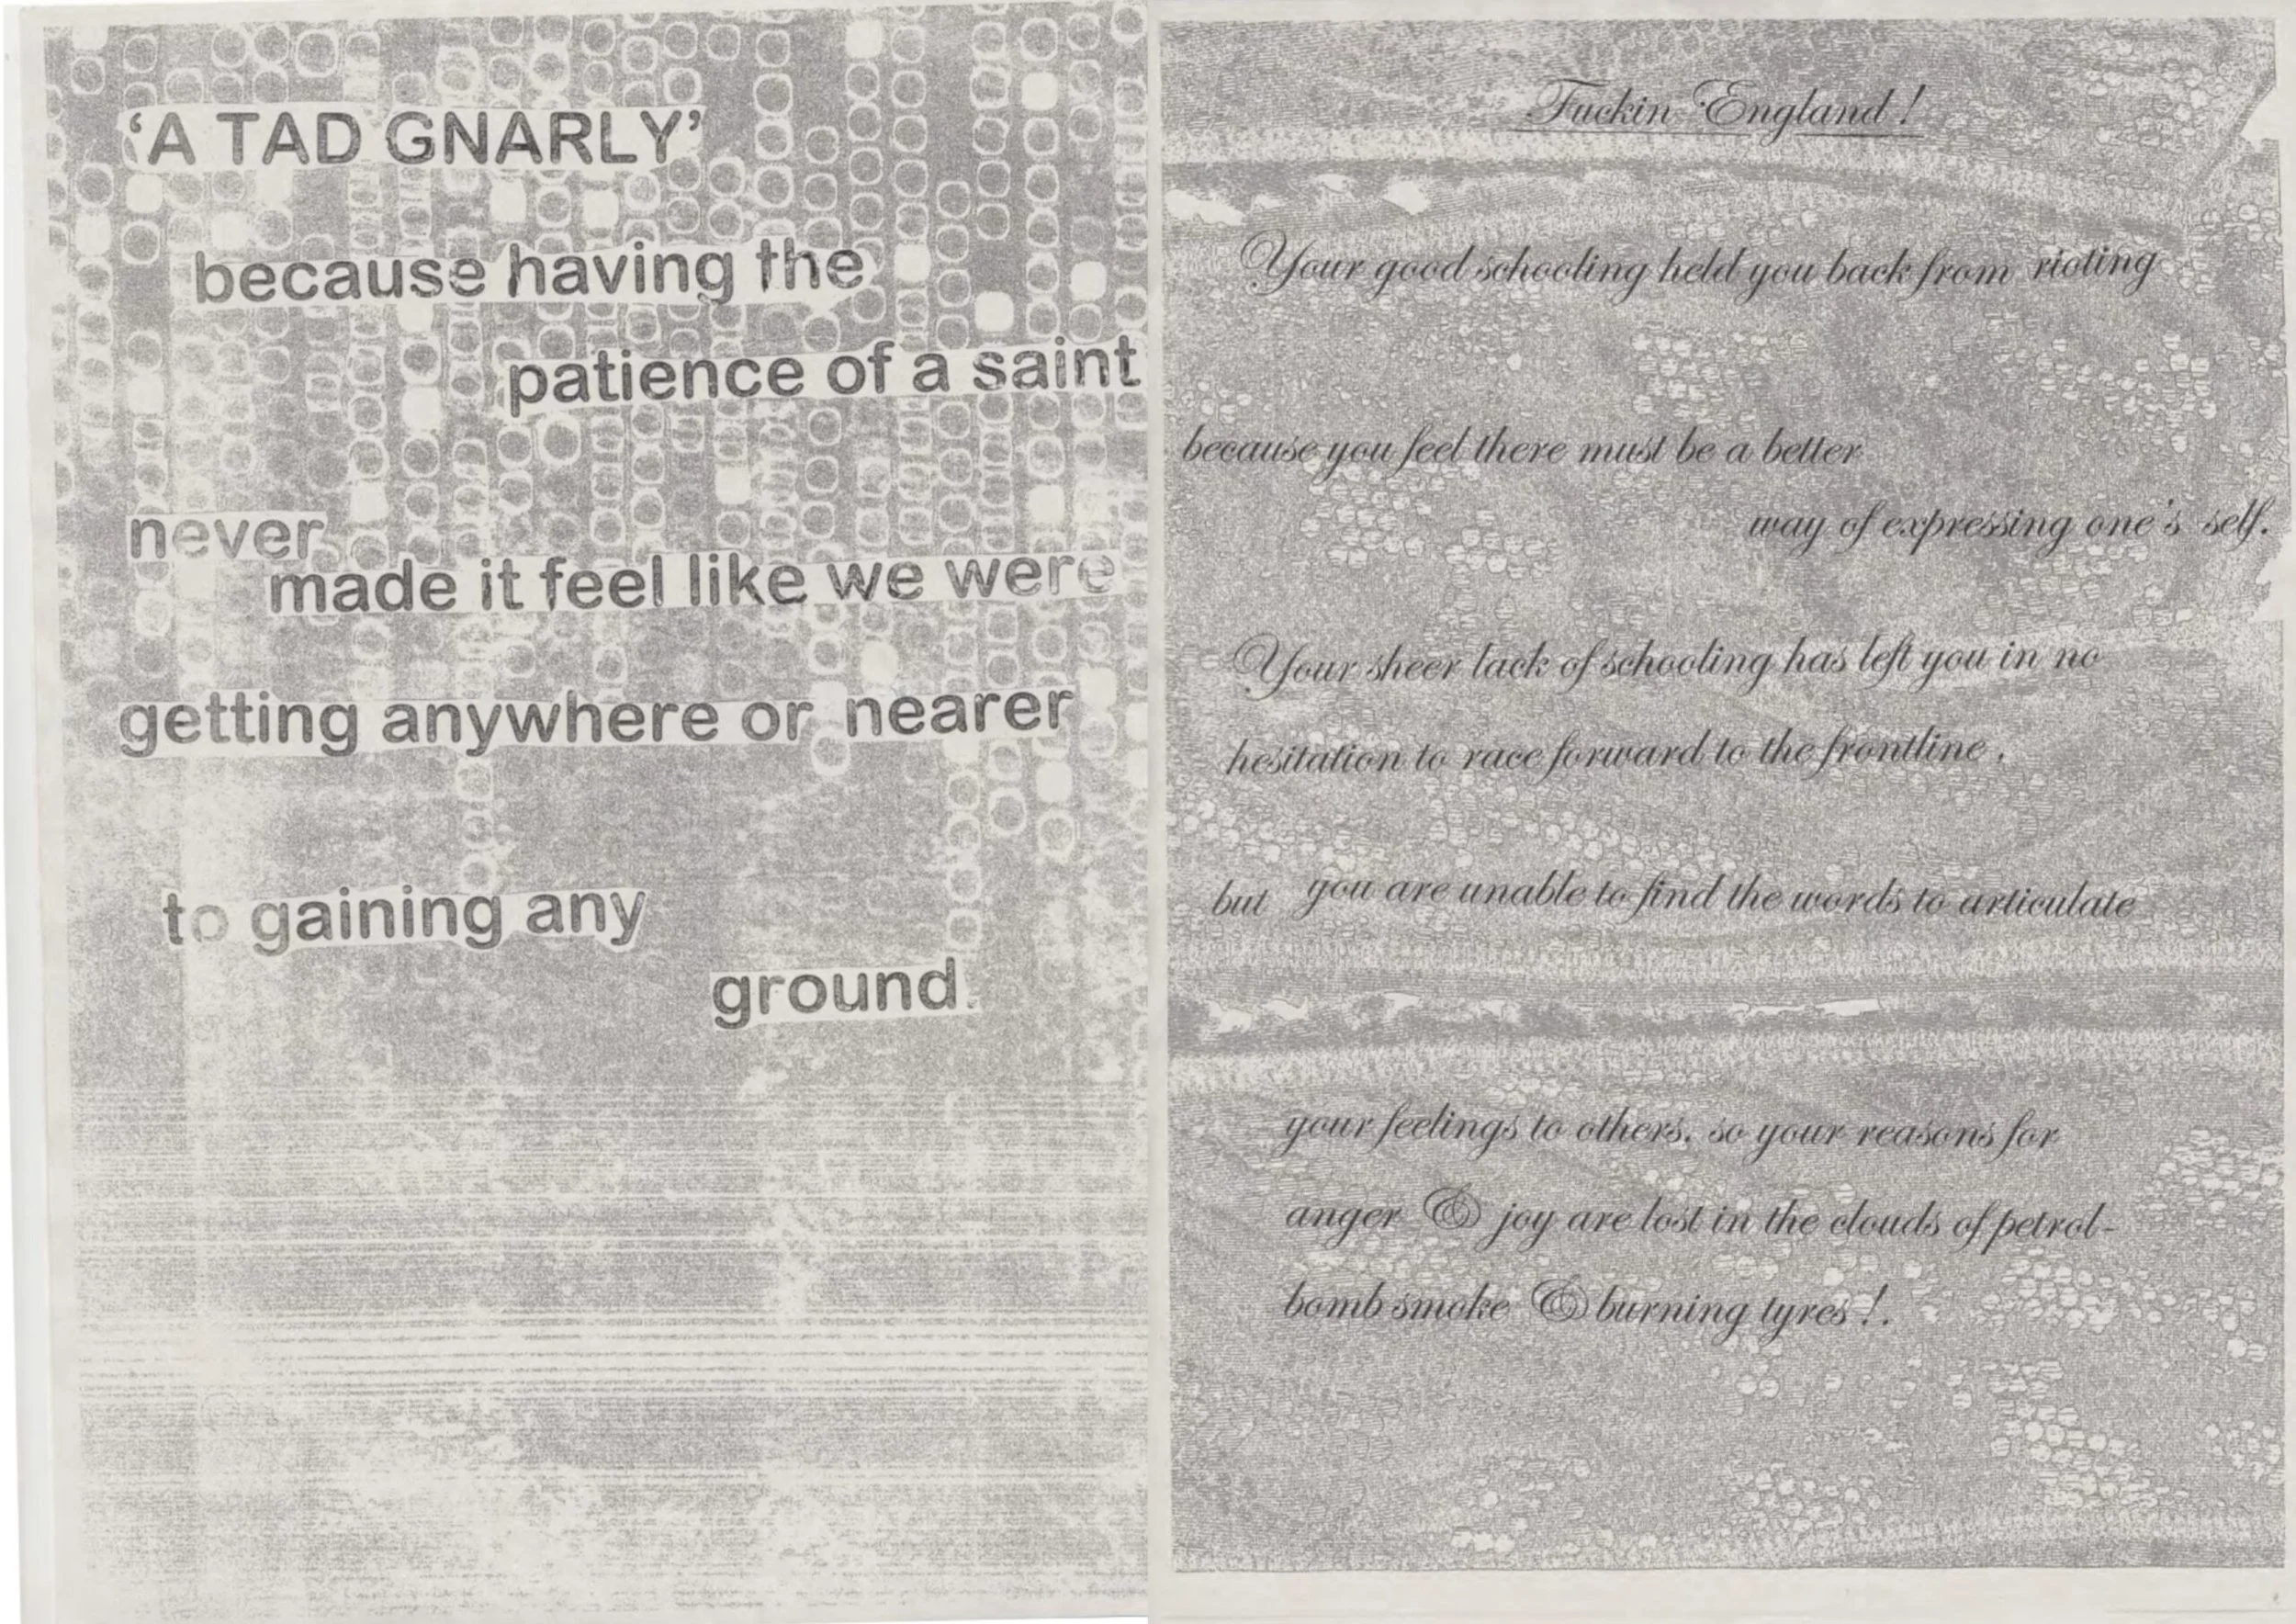 ‘A TAD GNARLY’
because having the
patience of a saint
never
made it feel like we were
getting anywhere or nearer
to gaining any
ground.
Fuckin England !
Your good schooling held you back from rioting
because you feel there must be a better
way of expressing one's self.
Your sheer lack of schooling has left you in no
hesitation to race forward to the frontline .
but you are unable to find the words to articulate
your feelings to others, so your reasons for
anger & joy are lost in the clouds of petrol-
bomb smoke & burning tyres !.